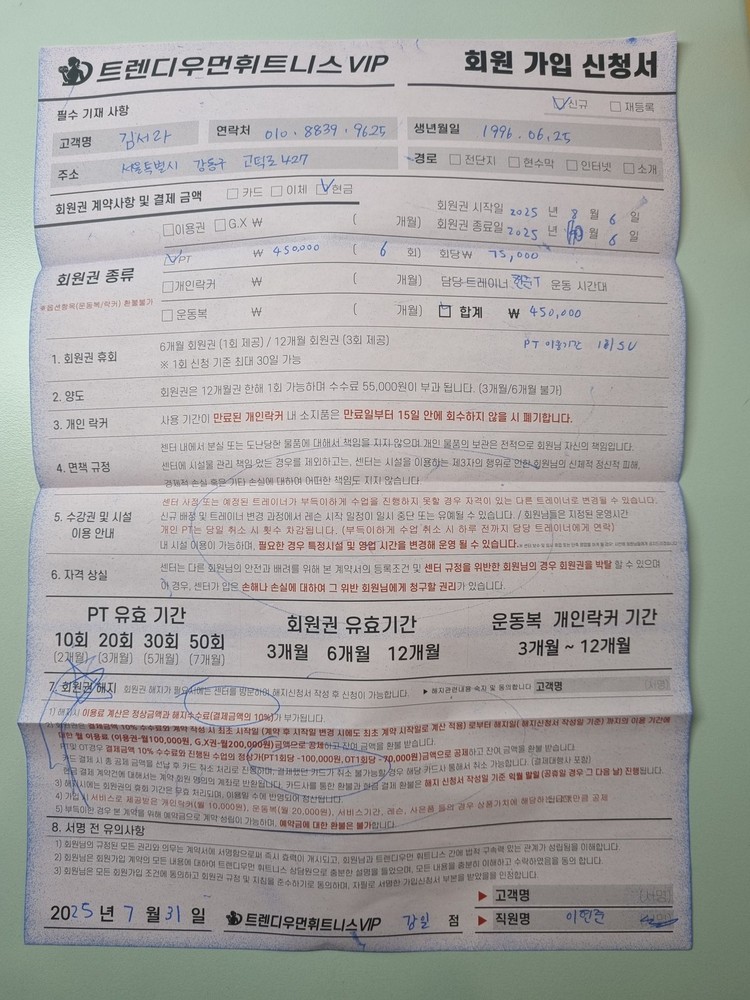 트렌디우먼휘트니스 VIP 회원 가입 신청서
필수 기재 사항 ☑신규 ☐재등록
고객명 김서라 연락처 010 · 8839 · 9625 생년월일 1996. 06. 25
주소 서울특별시 강동구 고덕로 427 경로 ☐전단지 ☐현수막 ☐인터넷 ☐소개
회원권 계약사항 및 결제 금액 ☐카드 ☐이체 ☑현금
회원권 시작일 2025 년 8 월 6 일
☐이용권 ☐G.X ₩ ( 개월) 회원권 종료일 2025 년 월 6 일
☑PT ₩ 450,000 ( 6 회) 회당₩ 75,000
회원권 종류
☐개인락커 ₩ ( 개월) 담당 트레이너 운동 시간대
※옵션항목(운동복/락커) 환불불가
☐운동복 ₩ ( 개월) ☐ 합계 ₩ 450,000
PT 이용기간
1. 회원권 휴회 6개월 회원권 (1회 제공) / 12개월 회원권 (3회 제공)
※ 1회 신청 기준 최대 30일 가능
2. 양도 회원권은 12개월권 한해 1회 가능하며 수수료 55,000원이 부과 됩니다. (3개월/6개월 불가)
3. 개인 락커 사용 기간이 만료된 개인락커 내 소지품은 만료일부터 15일 안에 회수하지 않을 시 폐기합니다.
4. 면책 규정 센터 내에서 분실 또는 도난당한 물품에 대해서 책임을 지지 않으며 개인 물품의 보관은 전적으로 회원님 자신의 책임입니다.
센터에 시설물 관리 책임 있는 경우를 제외하고는, 센터는 시설을 이용하는 제3자의 행위로 인한 회원님의 신체적 정신적 피해,
경제적 손실 혹은 기타 손실에 대하여 어떠한 책임도 지지 않습니다.
5. 수강권 및 시설 이용 안내
센터 사정 또는 예정된 트레이너가 부득이하게 수업을 진행하지 못할 경우 자격이 있는 다른 트레이너로 변경될 수 있습니다.
신규 배정 및 트레이너 변경 과정에서 레슨 시작 일정이 일시 중단 또는 유예될 수 있습니다. / 회원님들은 지정된 운영시간
개인 PT는 당일 취소 시 횟수 차감됩니다. (부득이하게 수업 취소 시 하루 전까지 담당 트레이너에게 연락)
내 시설 이용이 가능하며, 필요한 경우 특정시설 및 영업 시간을 변경해 운영 될 수 있습니다.
6. 자격 상실 센터는 다른 회원님의 안전과 배려를 위해 본 계약서의 등록조건 및 센터 규정을 위반한 회원님의 경우 회원권을 박탈 할 수 있으며
이 경우, 센터가 입은 손해나 손실에 대하여 그 위반 회원님에게 청구할 권리가 있습니다.
PT 유효 기간 회원권 유효기간 운동복 개인락커 기간
10회 20회 30회 50회 3개월 6개월 12개월 3개월 ~ 12개월
(2개월) (3개월) (5개월) (7개월)
7. 회원권 해지 회원권 해지가 필요시에는 센터를 방문하여 해지신청서 작성 후 신청이 가능합니다. ▶ 해지관련내용 숙지 및 동의합니다 고객명 (서명)
1) 해지시 이용료 계산은 정상금액과 해지수수료(결제금액의 10%)가 부가됩니다.
2) 회원권은 결제금액 10% 수수료와 계약 최초 시작일 (계약 후 시작일 변경 시에도 최초 계약 시작일로 계산 적용) 로부터 해지일 (해지신청서 작성일 기준) 까지의 이용 기간에
대한 월 이용료 (이용권-월100,000원, G.X권-월200,000원)금액으로 공제하고 잔여 금액을 환불 받습니다.
PT및 OT경우 결제금액 10% 수수료와 진행된 수업의 정상가(PT1회당 -100,000원, OT1회당 -70,000원)금액으로 공제하고 잔여 금액을 환불 받습니다.
카드 결제 시 총 공제 금액을 선납 후 카드 취소 처리로 진행하며, 결제했던 카드가 취소 불가능할 경우 해당 카드사 통해서 취소 가능합니다. (결제대행사 포함)
현금 결제 계약건에 대해서는 계약 회원 명의의 계좌로 반환됩니다. 카드사를 통한 환불과 현금 결제 환불은 해지 신청서 작성일 기준 익월 말일 (공휴일 경우 그 다음 날) 진행됩니다.
3) 해지시에는 회원권의 휴회 기간은 무효 처리되며, 이용일 수에 반영되어 정산됩니다.
4) 가입시 서비스로 제공받은 개인락커(월 10,000원), 운동복(월 20,000원), 서비스기간, 레슨, 사은품 등의 경우 상품가치에 해당하는
5) 부득이한 경우 본 계약을 위해 예약금으로 계약 성립이 가능하며, 예약금에 대한 환불은 불가합니다.
8. 서명 전 유의사항
1) 회원님의 규정된 모든 권리와 의무는 계약서에 서명함으로써 즉시 효력이 개시되고, 회원님과 트렌디우먼 휘트니스 간에 법적 구속력 있는 관계가 성립됨을 이해합니다.
2) 회원님은 회원가입 계약의 모든 내용에 대하여 트렌디우먼 휘트니스 상담원으로 충분한 설명을 들었으며, 모든 내용을 충분히 이해하고 수락하였음을 동의 합니다.
3) 회원님은 모든 회원가입 조건에 동의하고 회원권 규정 및 지침을 준수하기로 동의하며, 자필로 서명한 가입신청서 부본을 받았음을 인정합니다.
▶ 고객명 (서명)
2025 년 7 월 31 일 트렌디우먼휘트니스 VIP 강일 점 ▶ 직원명